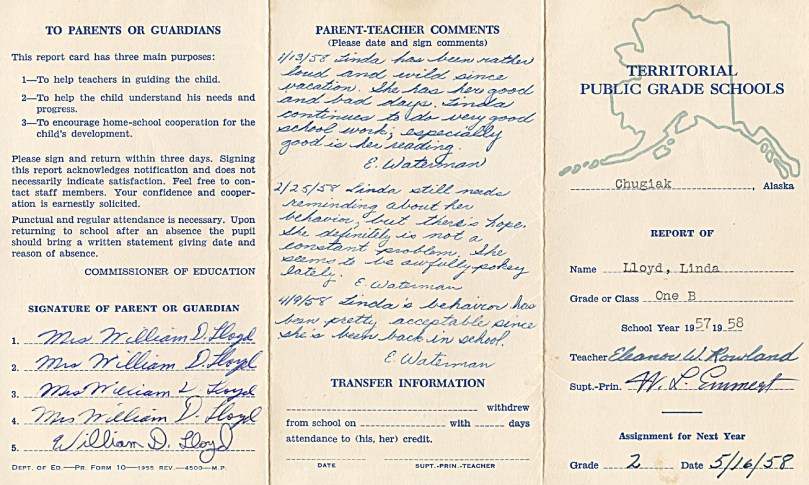 TO PARENTS OR GUARDIANS
This report card has three main purposes:
1—To help teachers in guiding the child.
2—To help the child understand his needs and
progress.
3—To encourage home-school cooperation for the
child's development.
Please sign and return within three days. Signing
this report acknowledges notification and does not
necessarily indicate satisfaction. Feel free to con-
tact staff members. Your confidence and cooper-
ation is earnestly solicited.
Punctual and regular attendance is necessary. Upon
returning to school after an absence the pupil
should bring a written statement giving date and
reason of absence.
COMMISSIONER OF EDUCATION
SIGNATURE OF PARENT OR GUARDIAN
1. Mrs William D. Lloyd
2. Mrs William D. Lloyd
3. Mrs William D. Lloyd
4. Mrs William D. Lloyd
5. William D. Lloyd
DEPT. OF ED.—PR. FORM 10—1955 REV.—4500—M.P.
PARENT-TEACHER COMMENTS
(Please date and sign comments)
1/13/58 Linda has been rather
loud and wild since
vacation. She has her good
and bad days. Linda
continues to do very good
school work; especially
good is her reading.
E. Waterman
2/25/58 Linda still needs
reminding about her
behavior, but there's hope.
She definitely is not a
constant problem. She
seems to be awfully pokey
lately.
E. Waterman
4/9/58 Linda's behavior has
been pretty acceptable since
she's been back in school.
E. Waterman
TRANSFER INFORMATION
withdrew
from school on with days
attendance to (his, her) credit.
DATE SUPT.-PRIN.-TEACHER
TERRITORIAL
PUBLIC GRADE SCHOOLS
Chugiak, Alaska
REPORT OF
Name Lloyd, Linda
Grade or Class One B
School Year 1957 1958
Teacher Eleanor W. Rowland
Supt.-Prin. W. L. Emmert
Assignment for Next Year
Grade 2 Date 5/16/58